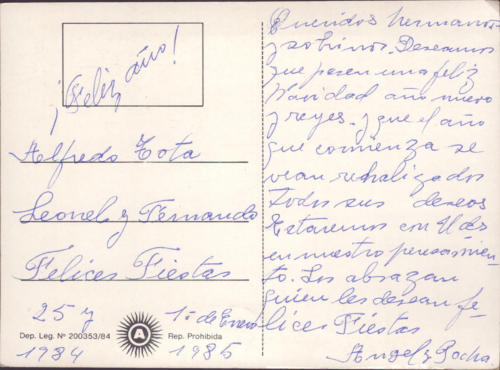 ¡Feliz año!
Alfredo Tota
Leonel y Fernando
Felices Fiestas
25 y 1º de Enero
Dep. Leg. Nº 200353/84
A
Rep. Prohibida
1984 1985
Queridos hermanos
y sobrinos. Deseamos
que pasen una feliz
Navidad año nuevo
y reyes. y que el año
que comienza se
vean realizados
todos sus deseos
Estaremos con Uds
en nuestro pensamien
to. Los abrazan
quien les desean fe
lices Fiestas
Angel y Pocha